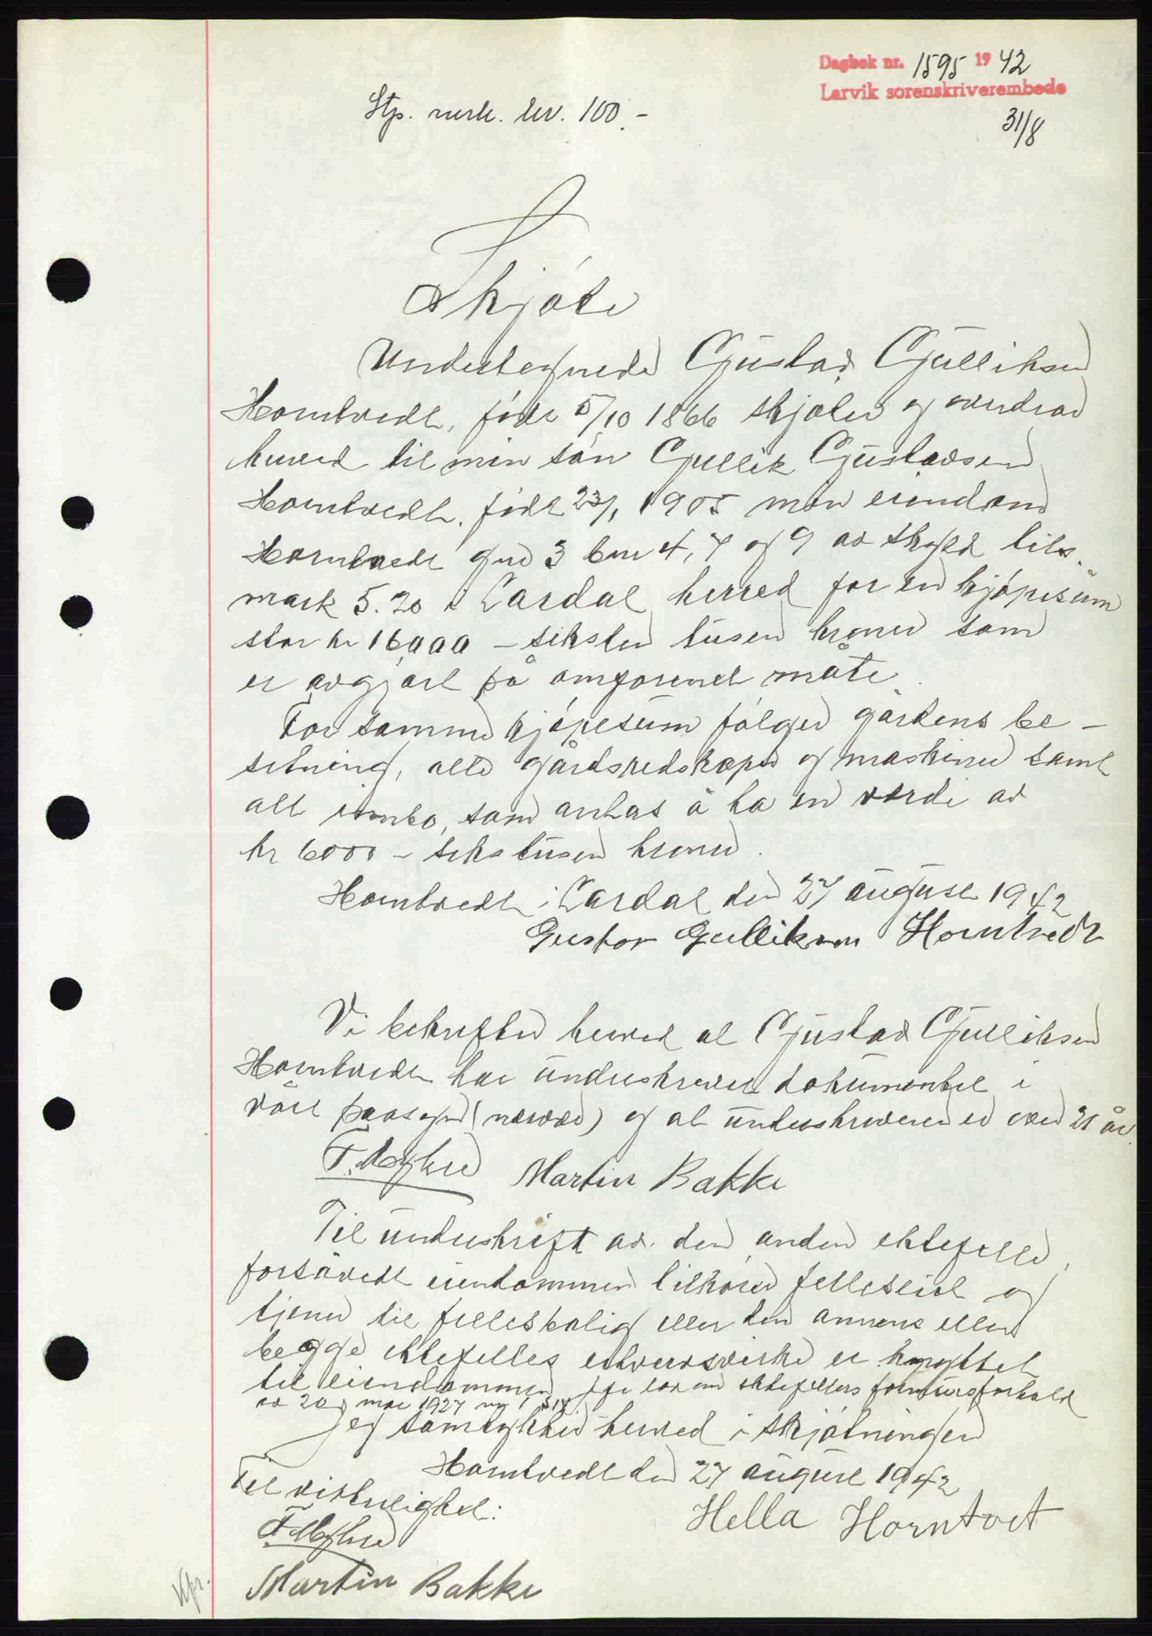 Dagbok nr. 1595 19 42
Larvik sorenskriverembede
31/8
Stp. merk. lev. 100.-
Skjøte
Undertegnede Gustav Gulliksen
Horntvedt, født 5/10 1866 skjøter og overdrar
herved til min søn Gullik Gustavsen
Horntvedt, født 23/1 1905 min eiendom
Horntvedt gnr 3 bnr 4, 7 og 9 av skyld tils.
mark 5.20 i Lardal herred for en kjøpesum
stor kr 16000 - seksten tusen kroner som
er avgjort på omforenet måte.
For samme kjøpesum følger gårdens be-
setning, alle gårdsredskaper og maskiner samt
alt innbo, som antas å ha en verdi av
kr 6000 - seks tusen kroner.
Horntvedt i Lardal den 27 august 1942
Gustav Gulliksen Horntvedt
Vi bekrefter herved at Gustav Gulliksen
Horntvedt har underskrevet dokumentet i
vårt paasyn (nærvær) og at underskriveren er over 21 år.
Martin Bakke
Til underskrift av den anden ektefelle,
forsåvidt eiendommen tilhører felleseiet og
tjener til fellesbolig eller den annens eller
begge ektefelles erhvervsvirke er knyttet
til eiendommen jfr lov om ektefellers formuesforhold
av 20 mai 1927 nr 1 § 14.
Jeg samtykker herved i skjøtningen
Horntvedt den 27 august 1942
Til vitterlighet:
Hella Horntvet
Martin Bakke